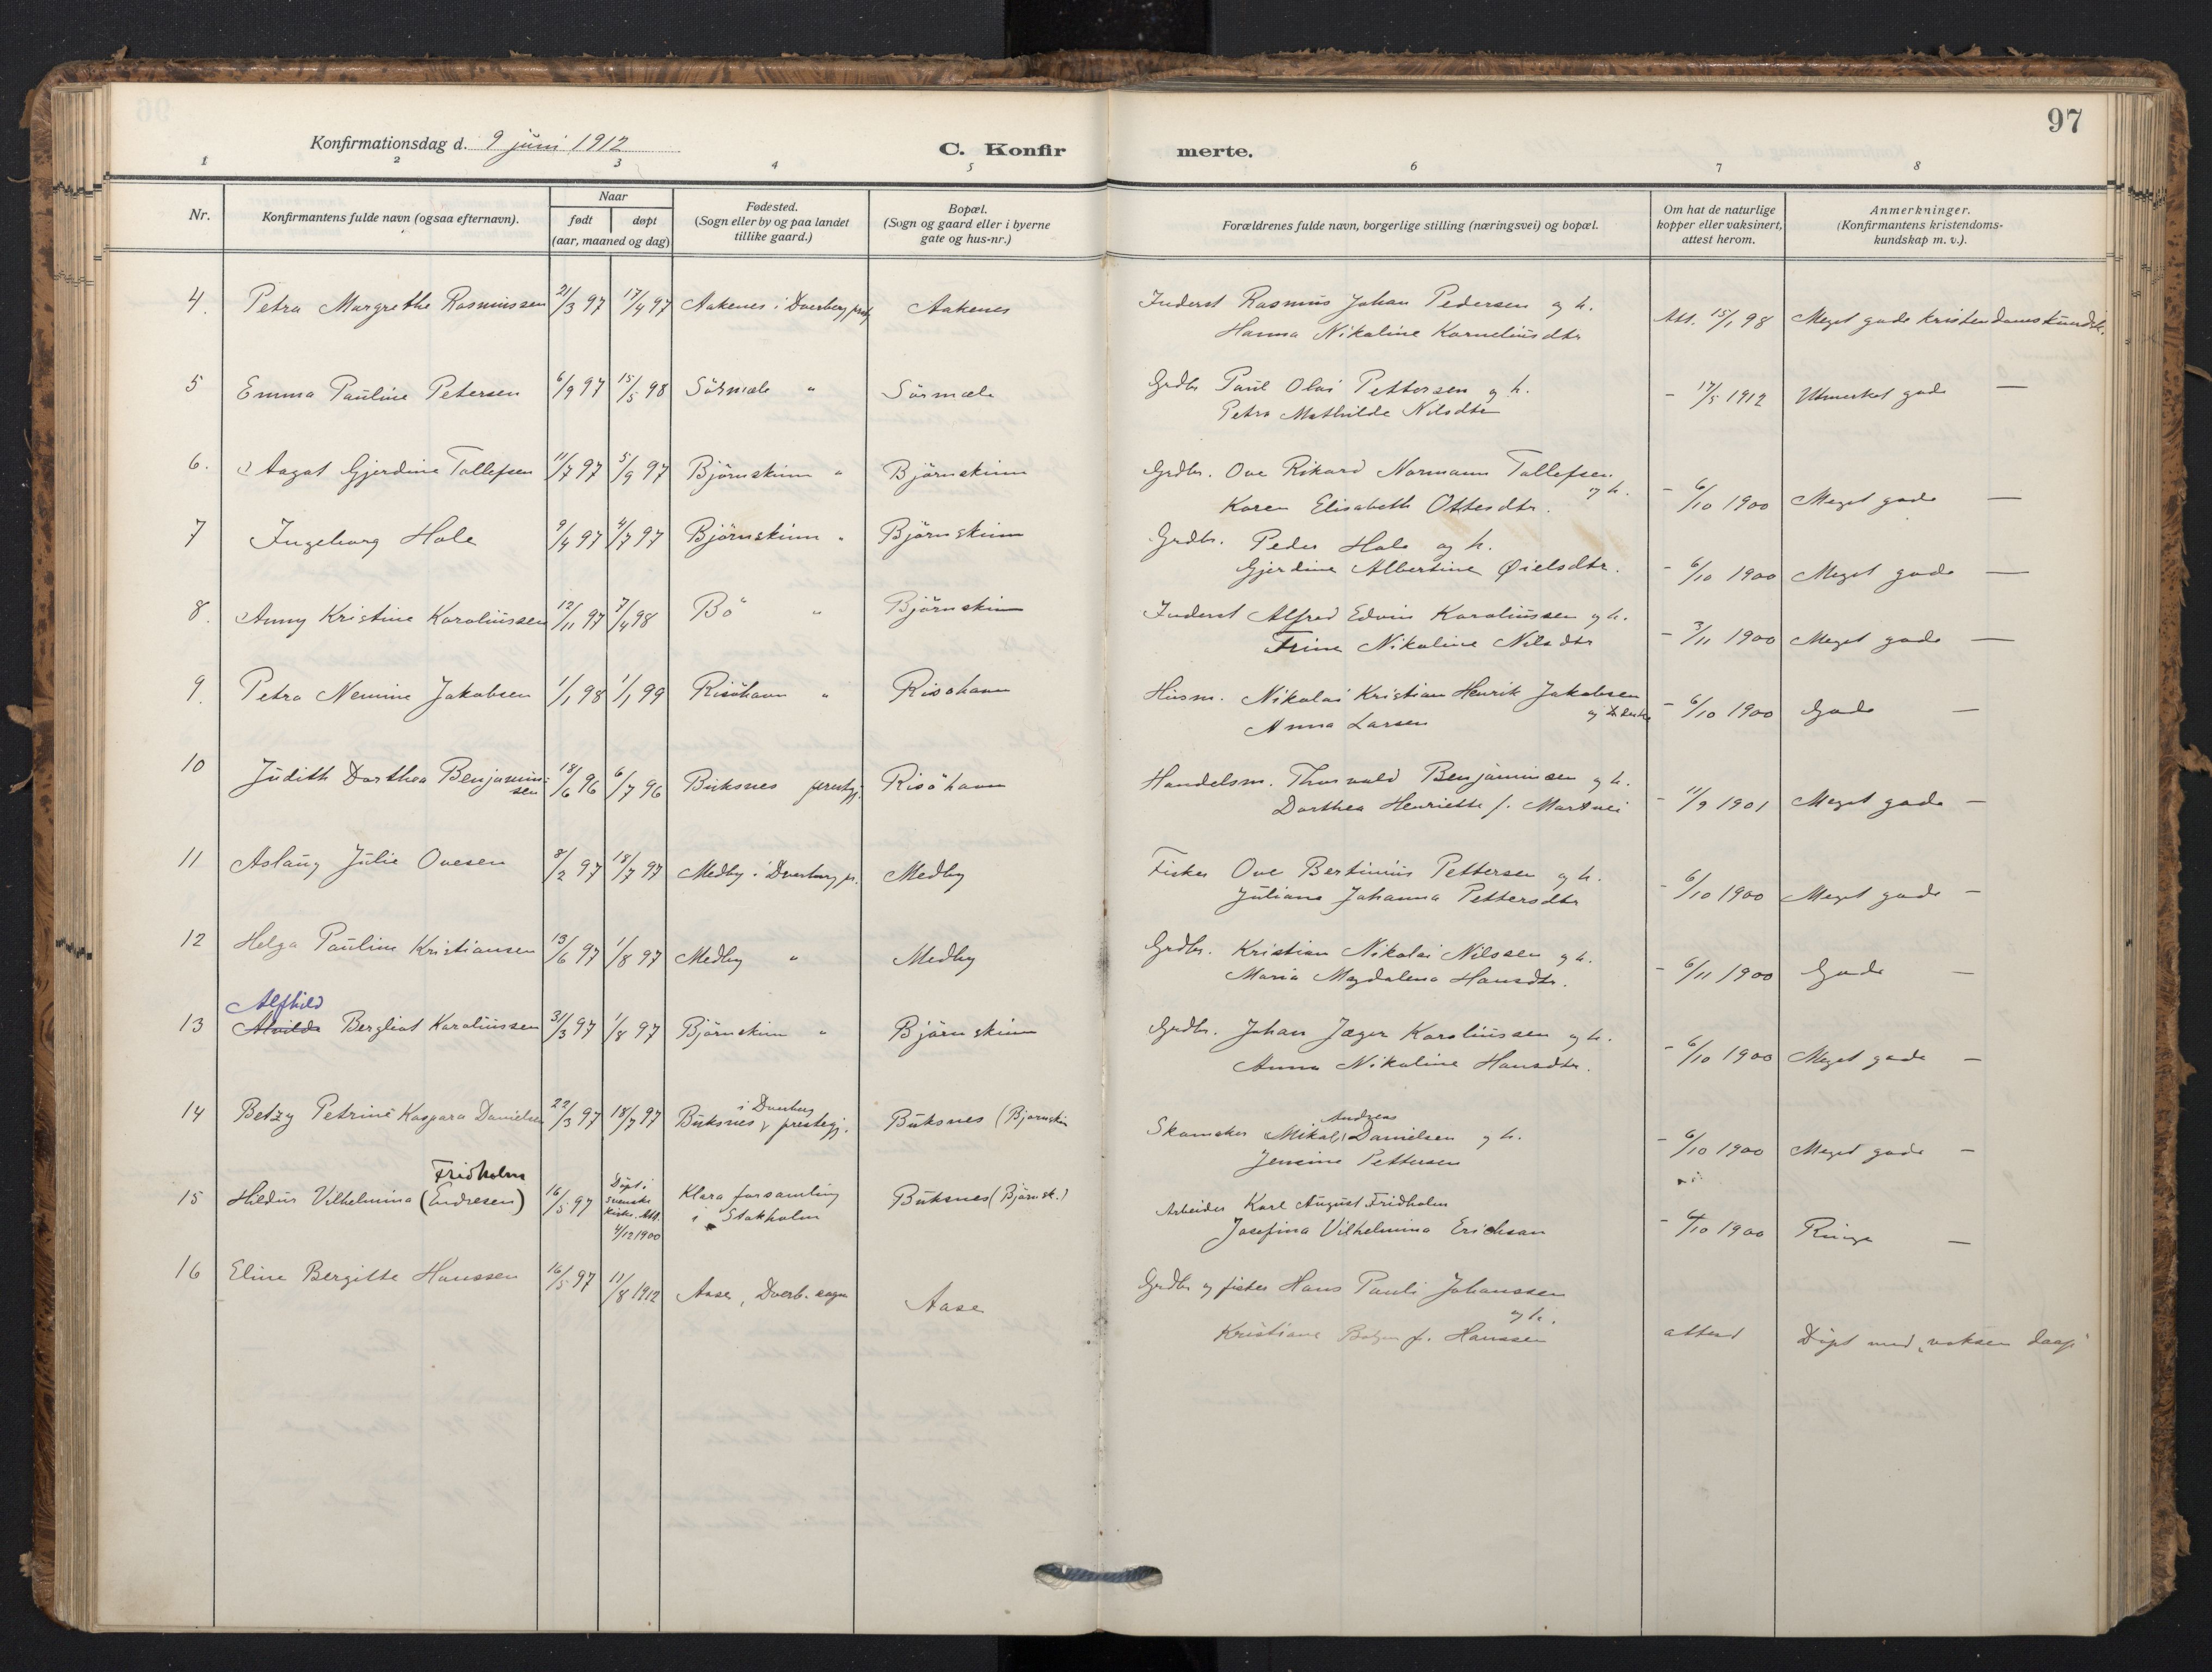 97
Konfirmationsdag d. 9 juni 1912
C. Konfirmerte.
1 2 3 4 5 6 7 8
Nr.
Konfirmantens fulde navn (ogsaa efternavn).
Naar
født døpt
(aar, maaned og dag)
Fødested.
(Sogn eller by og paa landet
tillike gaard.)
Bopæl.
(Sogn og gaard eller i byerne
gate og hus-nr.)
Forældrenes fulde navn, borgerlige stilling (næringsvei) og bopæl.
Om hat de naturlige
kopper eller vaksinert,
attest herom.
Anmerkninger.
(Konfirmantens kristendoms-
kundskap m. v.).
4. Petra Margrethe Rasmussen 21/3 97 17/4 97 Aakenes i Dverberg Aakenes Inderst Rasmus Johan Pedersen og h.
Hanna Nikoline Korneliusdtr Att. 15/1 98 Meget gode kristendomskundsk.
5 Emma Pauline Petersen 6/9 97 15/5 98 Sörmæle " Sörmæle Grdbr Paul Olai Pettersen og h.
Petra Mathilde Nilsdtr - 17/5 1912 Utmerket gode —
6. Aagot Gjerdine Tollefsen 11/7 97 5/9 97 Björnskinn " Björnskinn Grdbr. Ove Rikard Normann Tollefsen
og h.
Karen Elisabeth Ottesdtr. - 6/10 1900 Meget gode —
7 Ingeborg Hole 9/4 97 4/7 97 Björnskinn " Björnskinn Grdbr. Peder Hole og h.
Gjerdine Albertine Øielsdtr. - 6/10 1900 Meget gode —
8. Anny Kristine Karoliussen 12/11 97 7/4 98 Bö " Björnskinn Inderst Alfred Edvin Karoliussen og h.
Trine Nikoline Nilsdtr - 3/11 1900 Meget gode —
9. Petra Nemine Jakobsen 1/1 98 1/1 99 Risöhavn " Risöhavn Husm. Nikolai Kristian Henrik Jakobsen
Anna Larsen - 6/10 1900 Gode —
10 Judith Dorthea Benjamin-
sen 18/6 96 6/7 96 Buksnes prestgj. Risöhavn Handelsm. Thorvald Benjaminsen og h.
Dorthea Henriette f. - 11/9 1901 Meget gode —
11 Aslaug Julie Ovesen 8/2 97 18/7 97 Medby i Dverberg pr. Medby Fisker Ove Bertinius Pettersen og h.
Juliane Johanna Pettersdtr - 6/10 1900 Meget gode —
12 Helga Pauline Kristiansen 13/6 97 1/8 97 Medby " Medby Grdbr. Kristian Nikolai Nilssen og h.
Maria Magdalena Hansdtr. - 6/11 1900 Gode —
Alfhild
13 Alvilde Bergliot Karoliussen 31/3 97 1/8 97 Björnskinn " Björnskinn Grdbr. Johan Jæger Karoliussen og h.
Anna Nikoline Hansdtr. - 6/10 1900 Meget gode —
i Dverberg
14 Betzy Petrine Kaspara Danielsen 22/3 97 18/7 97 Buksnes prestegj. Buksnes (Bjørnskin Skomaker Mikal Andreas Danielsen og h.
Jensine Pettersen - 6/10 1900 Meget gode —
Fridholm
15 Hildur Vilhelmina (Endresen) 16/5 97 Döpt i
svenske
kirke. Att.
4/12 1900 Klara forsamling
i Stokholm Buksnes (Björnsk.) Arbeider Karl August Fridholm
Josefina Vilhelmina Erickson - 6/10 1900 Ringe —
16 Eline Bergitte Hanssen 16/5 97 11/8 1912 Aase, Dverb. sogn Aase Grdbr og fisker Hans Pauli Johanssen
og h.
Kristiane f. Hanssen attest Döpt med voksen daap